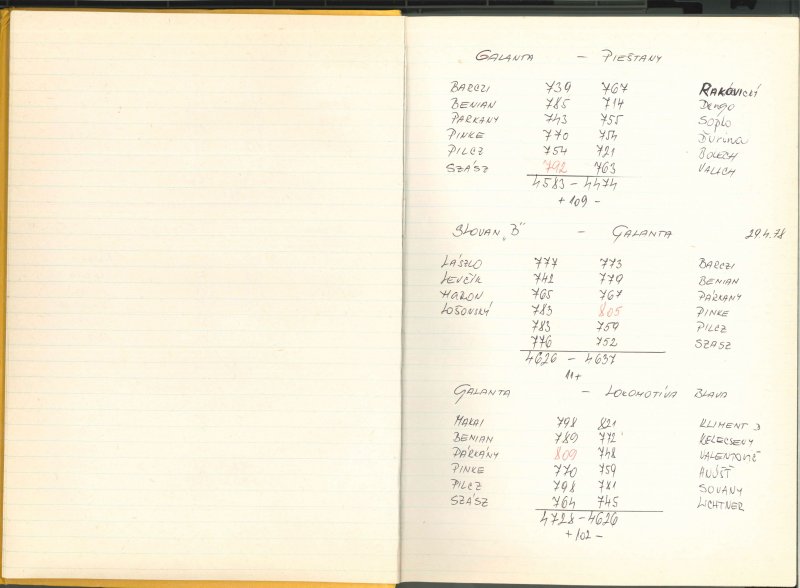 GALANTA – PIEŠTANY
BARCZI 739 767 RAKOVICKÍ
BENIAN 785 714
PÁRKÁNY 743 755 Soplo
PINKE 770 754 Ďurina
PILCZ 754 721 BOLECH
SZÁSZ 792 763 VALICH
4583 – 4474
+ 109 –
SLOVAN „B" – GALANTA 29.4.78
LÁSZLO 777 773 BARCZI
LEVČÍK 742 779 BENIAN
MORON 765 767 PÁRKÁNY
LOŠONSKÝ 783 805 PINKE
783 759 PILCZ
776 752 SZÁSZ
4626 – 4637
11+
GALANTA – LOKOMOTÍVA BLAVA
MAKAI 798 821 KLIMENT
BENIAN 789 772 KELECSENY
PÁRKÁNY 809 748 VALENTOVIČ
PINKE 770 759
PILCZ 798 781 SOVANY
SZÁSZ 764 745 LICHTNER
4728 – 4626
+ 102 –